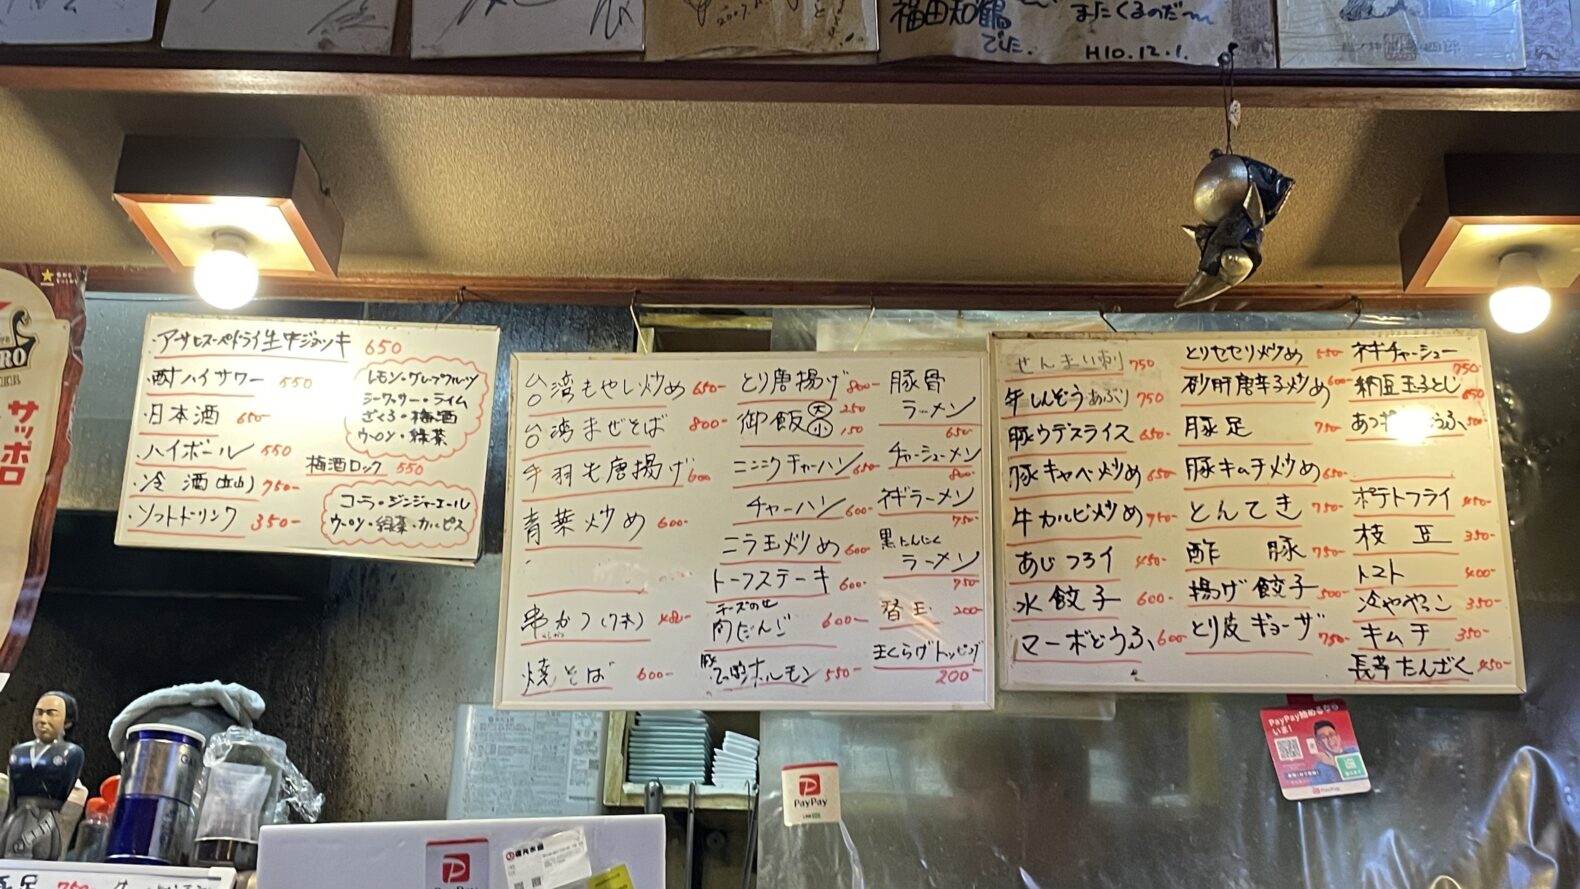 福田知鶴
でした.
またくるのだ〜
H10.12.1.
2007.
サッポロ
・アサヒスーパードライ生中ジョッキ 650
・酎ハイサワー 550
・日本酒 650
・ハイボール 550
・冷酒 750-
・ソフトドリンク 350-
レモン・グレープフルーツ
シークワーサー・ライム
ざくろ・梅酒
ウーロン・緑茶
梅酒ロック 550
コーラ・ジンジャーエール
ウーロン・緑茶・カルピス
台湾もやし炒め 650-
台湾まぜそば 800-
手羽先唐揚げ 600
青菜炒め 600-
串かつ(7本) 480-
焼そば 600-
とり唐揚げ 800-
御飯 大 250
小 150
ニンニクチャーハン 650
チャーハン 600-
ニラ玉炒め 600
トーフステーキ 600-
チーズのせ
肉だんご 600-
豚てっぽうホルモン 550-
豚骨
ラーメン
650-
チャーシューメン
800-
ネギラーメン
750-
黒にんにく
ラーメン
750-
替玉 200-
きくらげトッピング
200-
せんまい刺 750
牛しんぞうあぶり 750
豚ウデスライス 650-
豚キャベ炒め 650
牛カルビ炒め 750-
あじフライ 450-
水餃子 600-
マーボどうふ 600-
とりセセリ炒め 550-
砂肝唐辛子炒め 600-
豚足 750-
豚キムチ炒め 650-
とんてき 750-
酢豚 750-
揚げ餃子 500-
とり皮ギョーザ 750-
ネギチャーシュー
750-
納豆玉子とじ 650
ポテトフライ 450-
枝豆 350-
トマト 400-
冷ややっこ 350-
キムチ 350-
長芋たんざく 450-
PayPay
PayPay始めるなら
いま!
PayPay
PayPay
豚足 750-